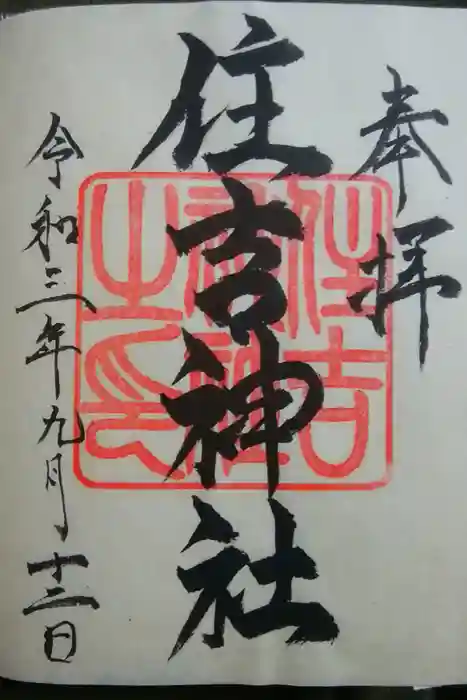 奉拝
住吉神社
令和三年九月十二日
住吉
神社
之印